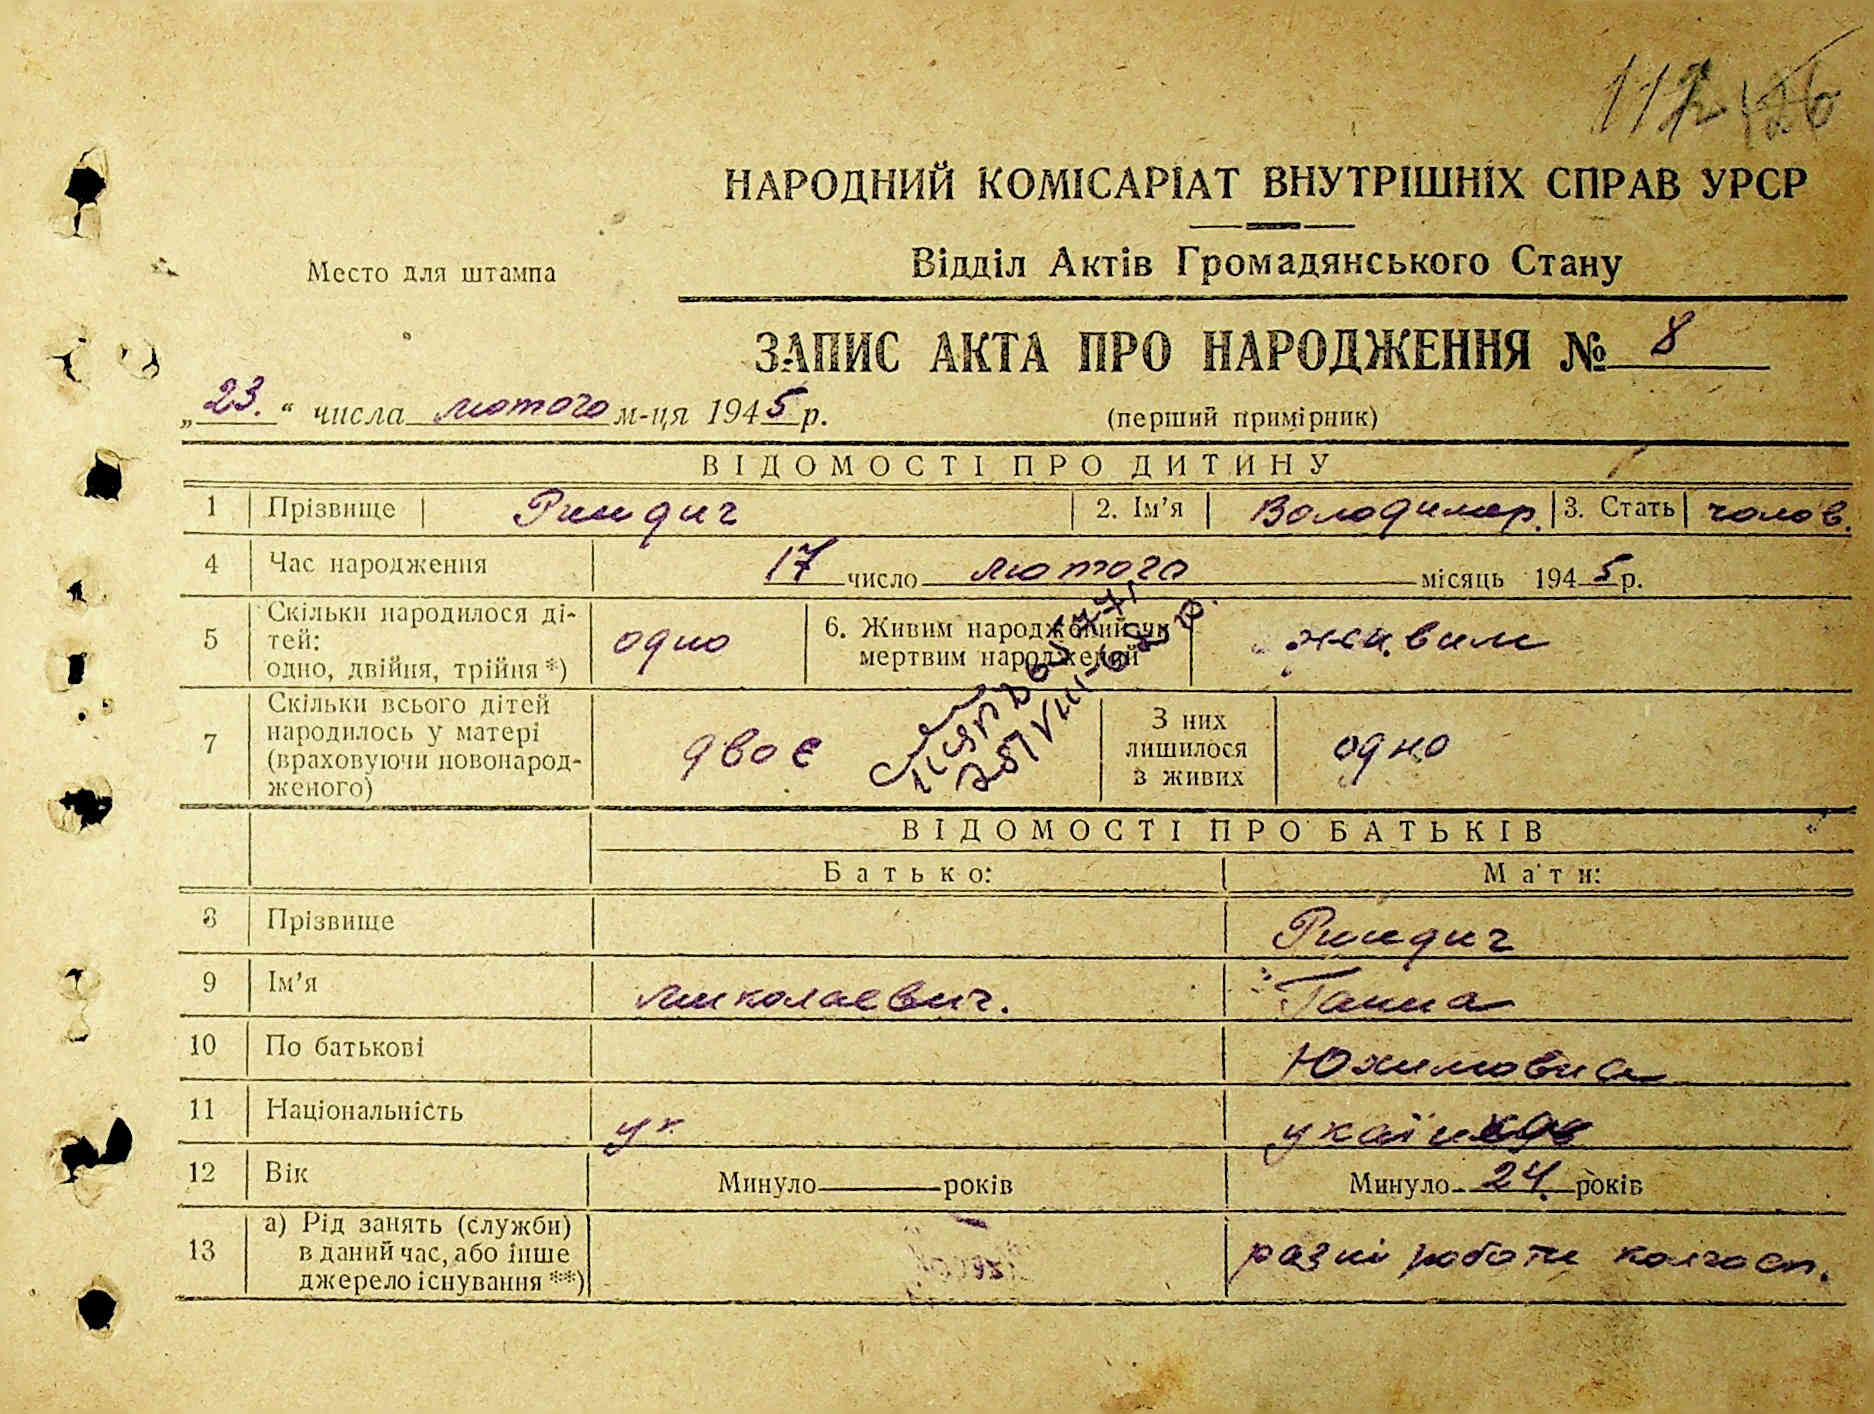 112
НАРОДНИЙ КОМІСАРІАТ ВНУТРІШНІХ СПРАВ УРСР
Відділ Актів Громадянського Стану
Место для штампа
ЗАПИС АКТА ПРО НАРОДЖЕННЯ № 8
„23.“ числа лютого м-ця 1945 р.
(перший примірник)
ВІДОМОСТІ ПРО ДИТИНУ
1 Прізвище 2. Ім'я Володимер. 3. Стать чолов.
4 Час народження 17 число лютого місяць 1945 р.
5 Скільки народилося ді-
тей:
одно, двійня, трійня *) одно 6. Живим народжений чи
мертвим народжений живим
7 Скільки всього дітей
народилось у матері
(враховуючи новонарод-
женого) двоє З них
лишилося
в живих одно
ВІДОМОСТІ ПРО БАТЬКІВ
Батько: Мати:
8 Прізвище
9 Ім'я Миколаевич. Ганна
10 По батькові Юхимовна
11 Національність ук
12 Вік Минуло років Минуло 24. років
13 а) Рід занять (служби)
в даний час, або інше
джерело існування **) разні роботи колгосп.